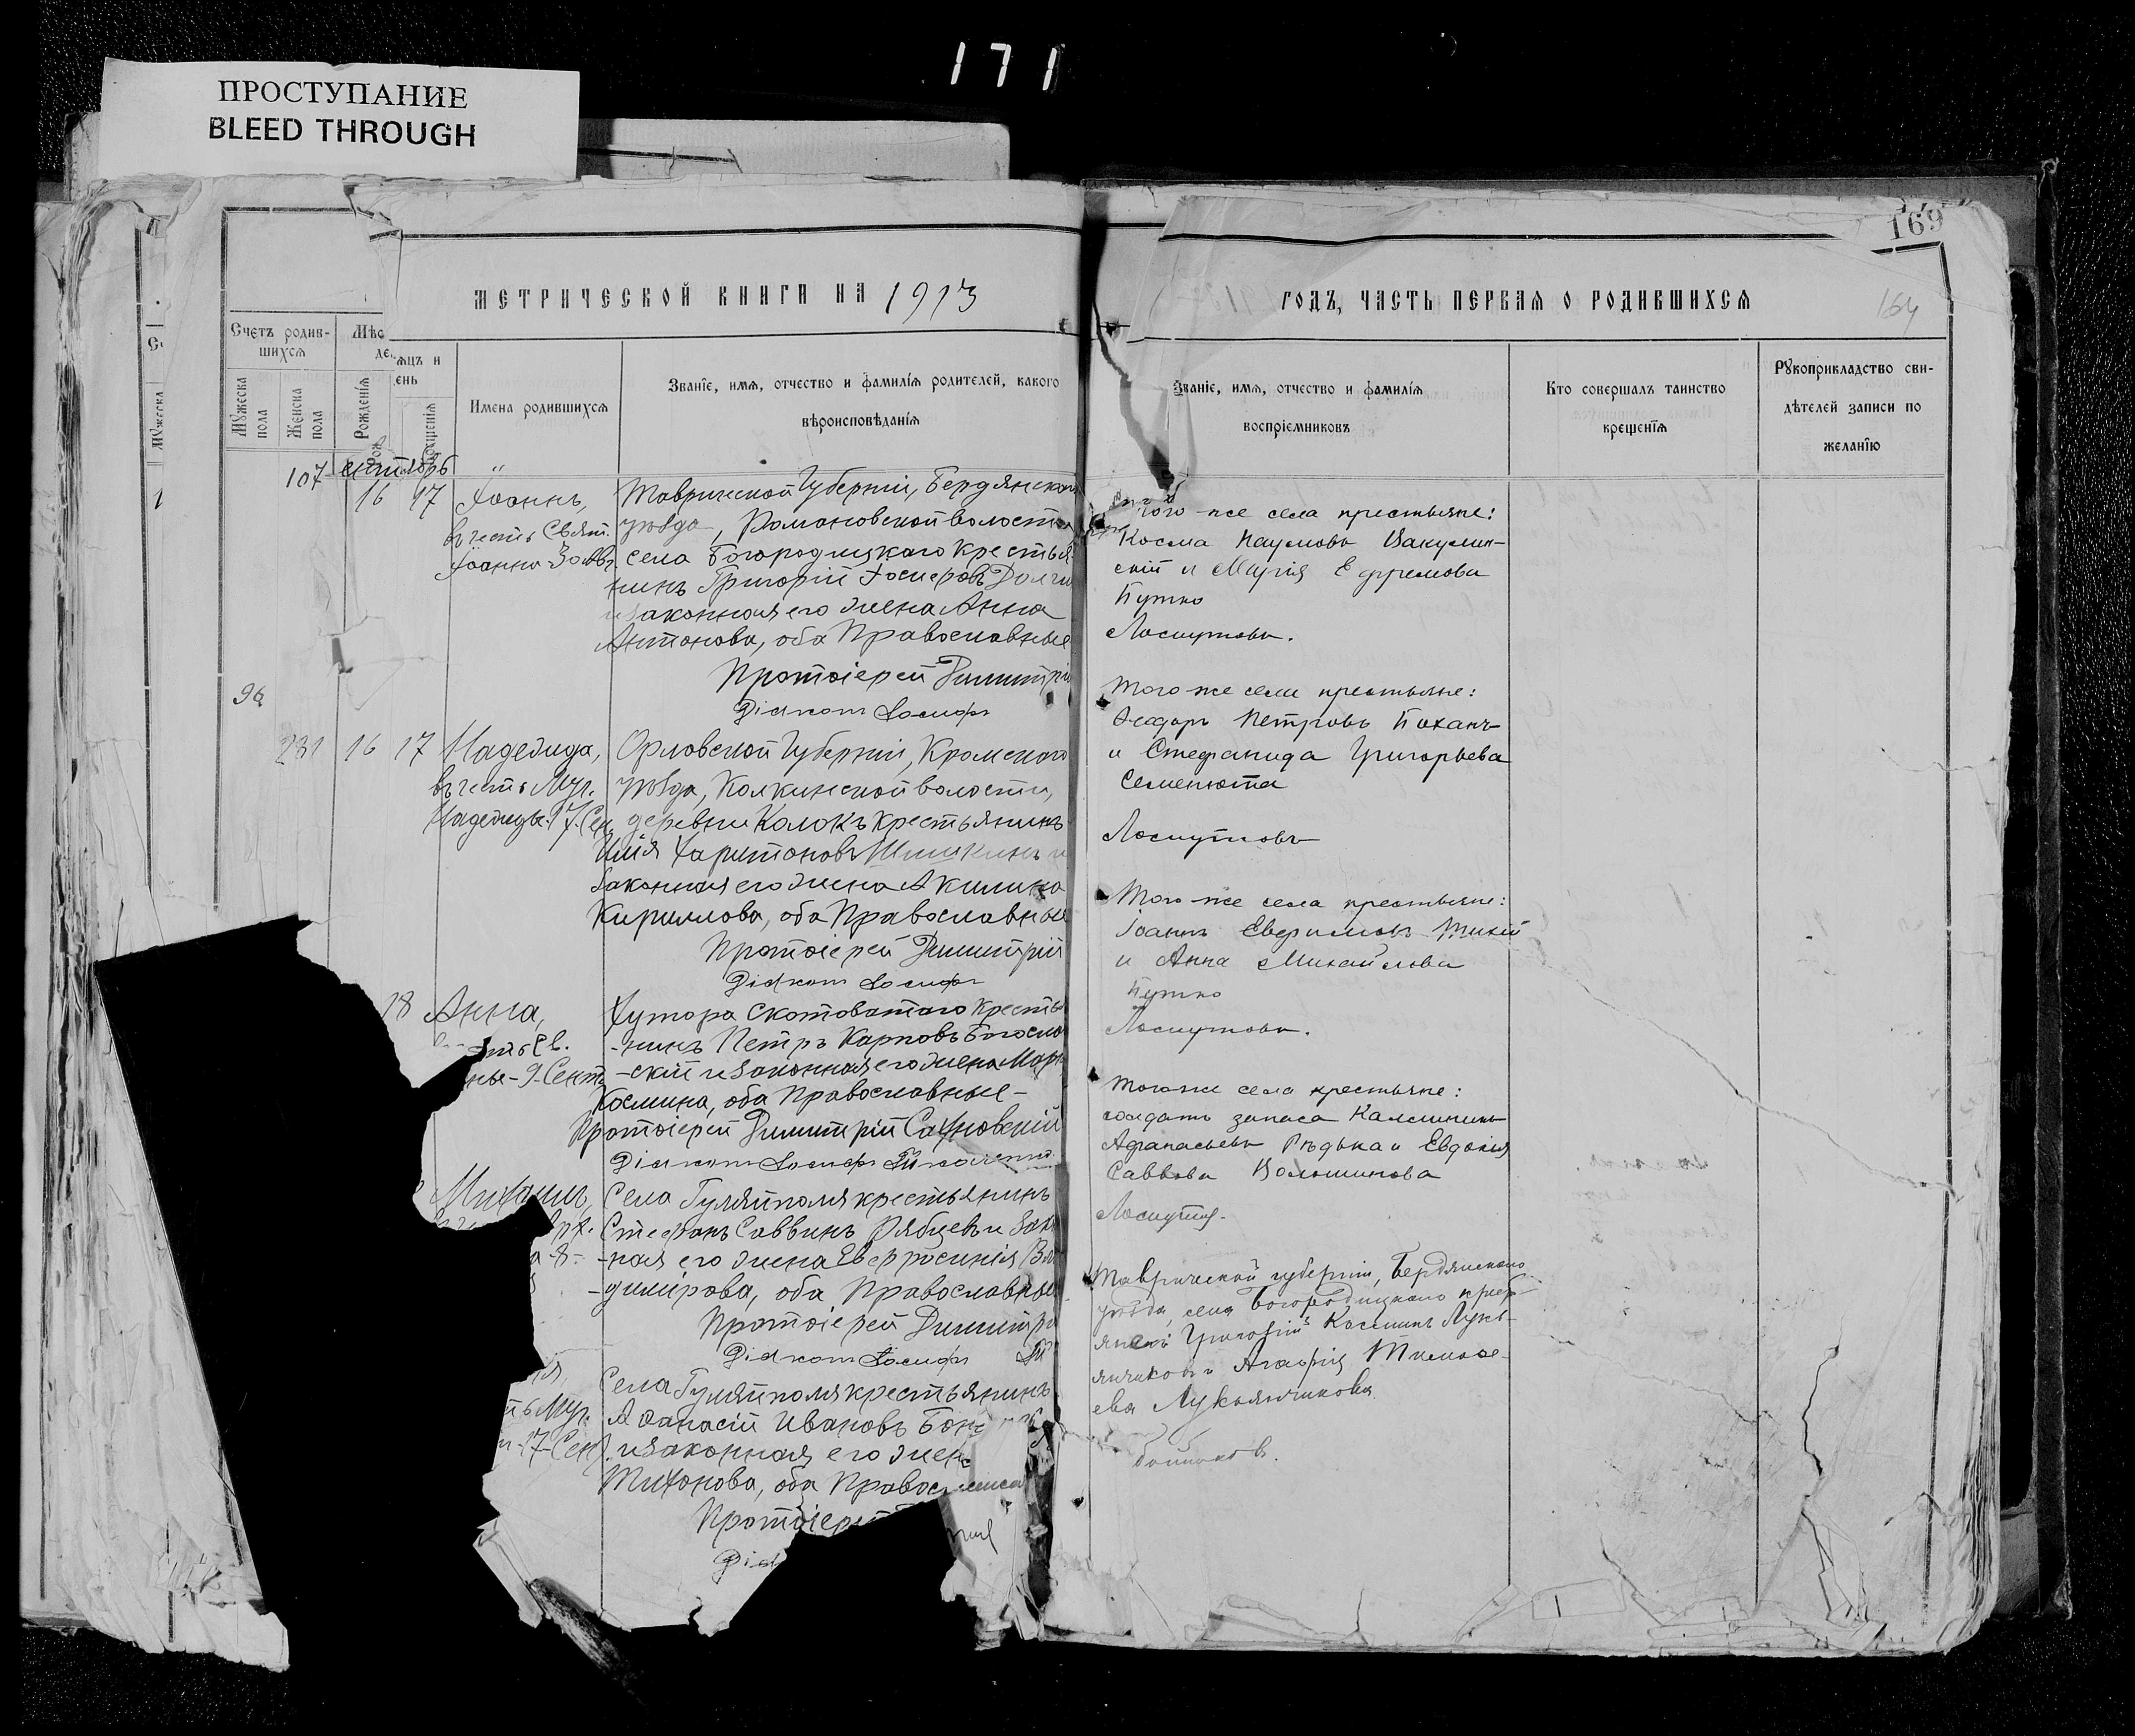 171
ПРОСТУПАНИЕ
BLEED THROUGH
169
164
МЕТРИЧЕСКОЙ КНИГИ НА 1913
Счетъ родив-
шихся
Мужеска пола
Женска пола
Рожденія
Имена родившихся
Званіе, имя, отчество и фамилія родителей, какого
вѣроисповѣданія
107
16 17 Іоаннъ,
Таврической Губерніи, Бердянскаго
въ честь Свят.
уѣзда, Романовской волости
села Богородицкаго крестья-
нинъ Григорій
и законная его жена Анна
Антонова, оба Православные
Протоіерей Димитрій
Діаконъ Іосифъ
96
231 16 17 Надежда,
Орловской Губерніи, Кромскаго
въ честь Муч.
уѣзда, Колкинской волости,
Надежды. 17. Сен.
деревни Колокъ крестьянинъ
Илія Харитоновъ Шишкинъ и
законная его жена Акилина
Кириллова, оба Православные
Протоіерей Димитрій
Діаконъ Іосифъ
18 Анна,
Хутора Скотоватаго кресть
Св.
-нинъ Петръ Карповъ Богосло
-9-Сент.
-скій и законная его жена Мар
Космина, оба Православные-
Протоіерей Димитрій Сахновскій
Діаконъ Іосифъ Ткаченко
Михаилъ,
Села Гуляйполя крестьянинъ
Стефанъ Саввинъ Рябцевъ и зак
-ная его жена Евфросинія Вла
-димірова, оба Православные
Протоіерей Димитрі
Діаконъ Іосифъ
Села Гуляйполя крестьянинъ
Муч.
Аѳанасій Ивановъ
17-Сен.
и законная его жен
Тихонова, оба Правос
Протоіерей
Діа
ГОДЪ, ЧАСТЬ ПЕРВАЯ О РОДИВШИХСЯ
Званіе, имя, отчество и фамилія
воспріемниковъ
Кто совершалъ таинство
крещенія
Рукоприкладство сви-
дѣтелей записи по
желанію
Того-же села крестьяне:
Косма Наумовъ Вакулин-
скій и Марія Ефремова
Путко
Лоскутовъ.
Того-же села крестьяне:
Ѳеодоръ Петровъ Коханъ-
и Стефанида Григорьева
Семенюта
Лоскутовъ
Того-же села крестьяне:
Іоаннъ Евфимовъ Тихій
и Анна Михайлова
Путко
Лоскутовъ.
Того же села крестьяне:
солдатъ запаса Каллиникъ
Афанасьевъ Рѣдька и Евдокія
Саввова Волошинова
Таврической губерніи, Бердянскаго
уѣзда, села Богородицкаго крест-
Григорій Косминъ Лукь-
янчиковъ и Агафія Тимофе-
ева Лукьянчикова